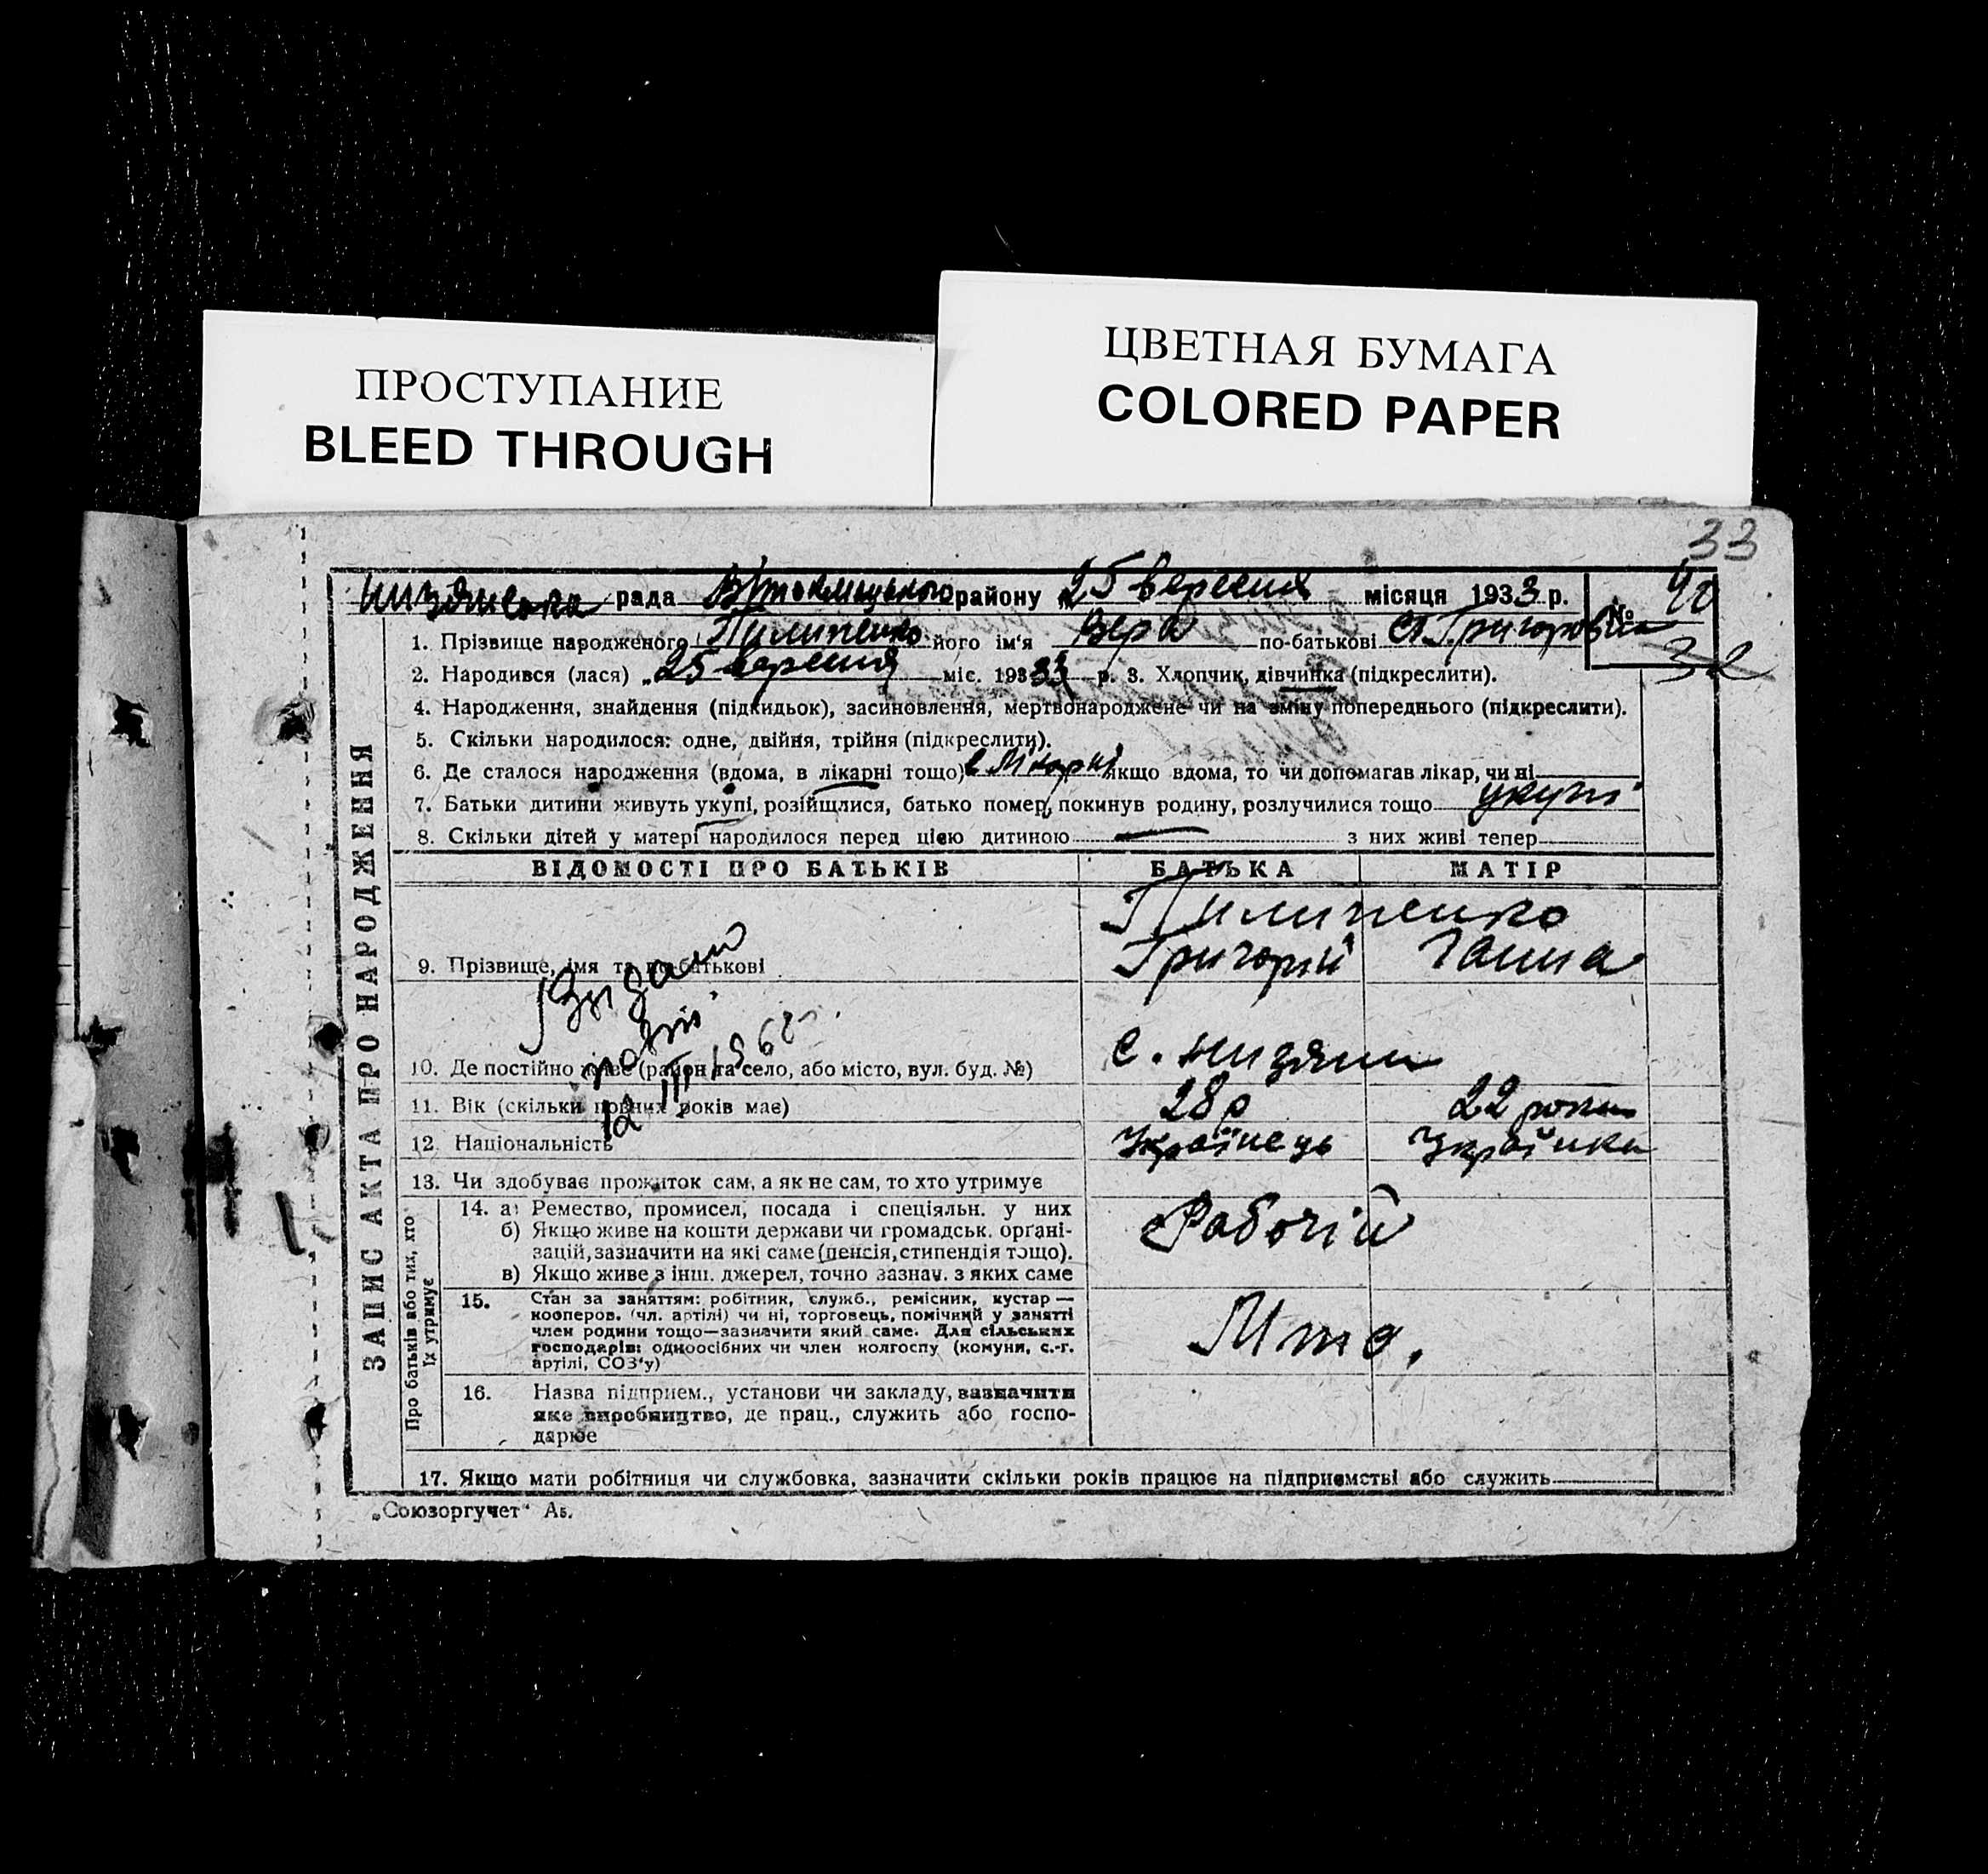 ПРОСТУПАНИЕ
BLEED THROUGH
ЦВЕТНАЯ БУМАГА
COLORED PAPER
33
рада району 25 вересня місяця 1933 р. № 40
32
1. Прізвище народженого Пилипенко його ім'я Вера по-батькові Григоровна
2. Народився (лася) „25 вересня міс. 193 33 р. 3. Хлопчик, дівчинка (підкреслити).
4. Народження, знайдення (підкидьок), засиновлення, мертвонароджене чи на зміну попереднього (підкреслити).
5. Скільки народилося: одне, двійня, трійня (підкреслити).
6. Де сталося народження (вдома, в лікарні тощо) в лікарні якщо вдома, то чи допомагав лікар, чи ні
7. Батьки дитини живуть укупі, розійшлися, батько помер, покинув родину, розлучилися тощо укупі
8. Скільки дітей у матері народилося перед цією дитиною — з них живі тепер
ЗАПИС АКТА ПРО НАРОДЖЕННЯ
ВІДОМОСТІ ПРО БАТЬКІВ БАТЬКА МАТІР
Пилипенко
9. Прізвище, імя та по-батькові Григорій Ганна
10. Де постійно живе (район та село, або місто, вул. буд. №) с. Низяни
11. Вік (скільки повних років має) 28 р 22 роки
12. Національність Українець Українка
13. Чи здобуває прожиток сам, а як не сам, то хто утримує
Про батьків або тих, хто
їх утримує
14. а) Ремество, промисел, посада і спеціяльн. у них
б) Якщо живе на кошти держави чи громадськ. органі-
зацій, зазначити на які саме (пенсія, стипендія тощо).
в) Якщо живе з інш. джерел, точно зазнач. з яких саме
Рабочій
15. Стан за заняттям: робітник, служб., ремісник, кустар —
кооперов. (чл. артілі) чи ні, торговець, помічний у занятті
член родини тощо—зазначити який саме. Для сільських
господарів: одноосібних чи член колгоспу (комуни, с.-г.
артілі, СОЗ'у)
16. Назва підприєм., установи чи закладу, зазначити
яке виробництво, де прац., служить або госпо-
дарює
17. Якщо мати робітниця чи службовка, зазначити скільки років працює на підприємстві або служить
„Союзоргучет" Аз.